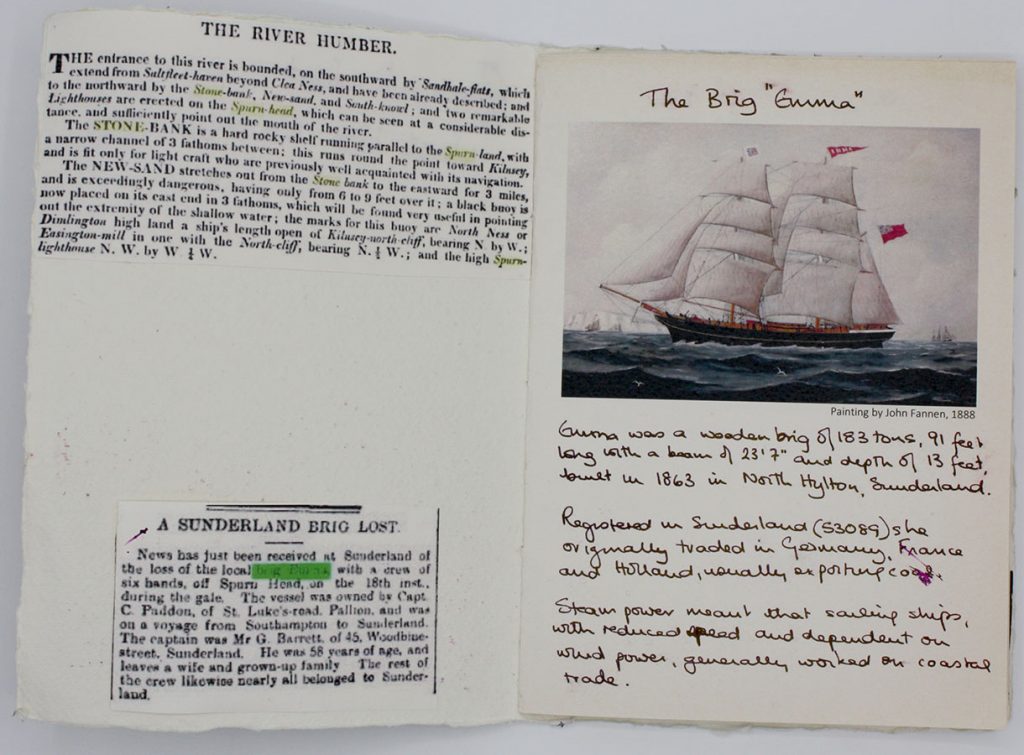 THE RIVER HUMBER.
THE entrance to this river is bounded, on the southward by Sandhale-flats, which
extend from Saltfleet-haven beyond Clea Ness, and have been already described; and
to the northward by the Stone-bank, New-sand, and South-knowl; and two remarkable
Lighthouses are erected on the Spurn-head, which can be seen at a considerable dis-
tance, and sufficiently point out the mouth of the river.
The STONE-BANK is a hard rocky shelf running parallel to the Spurn-land, with
a narrow channel of 3 fathoms between; this runs round the point toward Kilnsey,
and is fit only for light craft who are previously well acquainted with its navigation.
The NEW-SAND stretches out from the Stone bank to the eastward for 3 miles,
and is exceedingly dangerous, having only from 6 to 9 feet over it; a black buoy is
now placed on its east end in 3 fathoms, which will be found very useful in pointing
out the extremity of the shallow water; the marks for this buoy are North Ness or
Dimlington high land a ship's length open of Kilnsey-north-cliff, bearing N by W.;
Easington-mill in one with the North-cliff, bearing N. ½ W.; and the high Spurn-
lighthouse N. W. by W ¼ W.
A SUNDERLAND BRIG LOST.
News has just been received at Sunderland of
the loss of the local brig Emma with a crew of
six hands, off Spurn Head, on the 18th inst.,
during the gale. The vessel was owned by Capt.
C. Paddon, of St. Luke's-road, Pallion, and was
on a voyage from Southampton to Sunderland.
The captain was Mr G. Barrett, of 45, Woodbine-
street, Sunderland. He was 58 years of age, and
leaves a wife and grown-up family The rest of
the crew likewise nearly all belonged to Sunder-
land.
The Brig "Emma"
EMMA
Painting by John Fannen, 1888
Emma was a wooden brig of 183 tons, 91 feet
long with a beam of 23'7" and depth of 13 feet,
built in 1863 in North Hylton, Sunderland.
Registered in Sunderland (53089) she
originally traded in Germany, France
and Holland, usually exporting coal.
Steam power meant that sailing ships,
with reduced speed and dependent on
wind power, generally worked on coastal
trade.